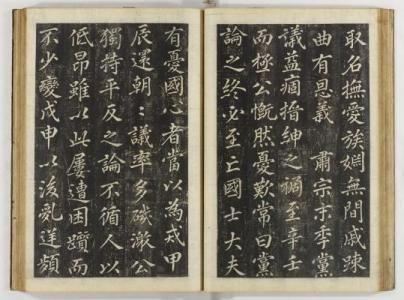 取名撫愛族婣無間戚踈
曲有恩義 肅宗末季黨
議益痼搢紳之禍至辛壬
而極公慨然憂歎常曰黨
論之終必至亡國士大夫
有憂國心者當以為戒甲
辰還朝〻議率多磯激公
獨持平反之論不循人以
低昂雖以此屢遭困躓而
不少變戊申以後亂逆頻